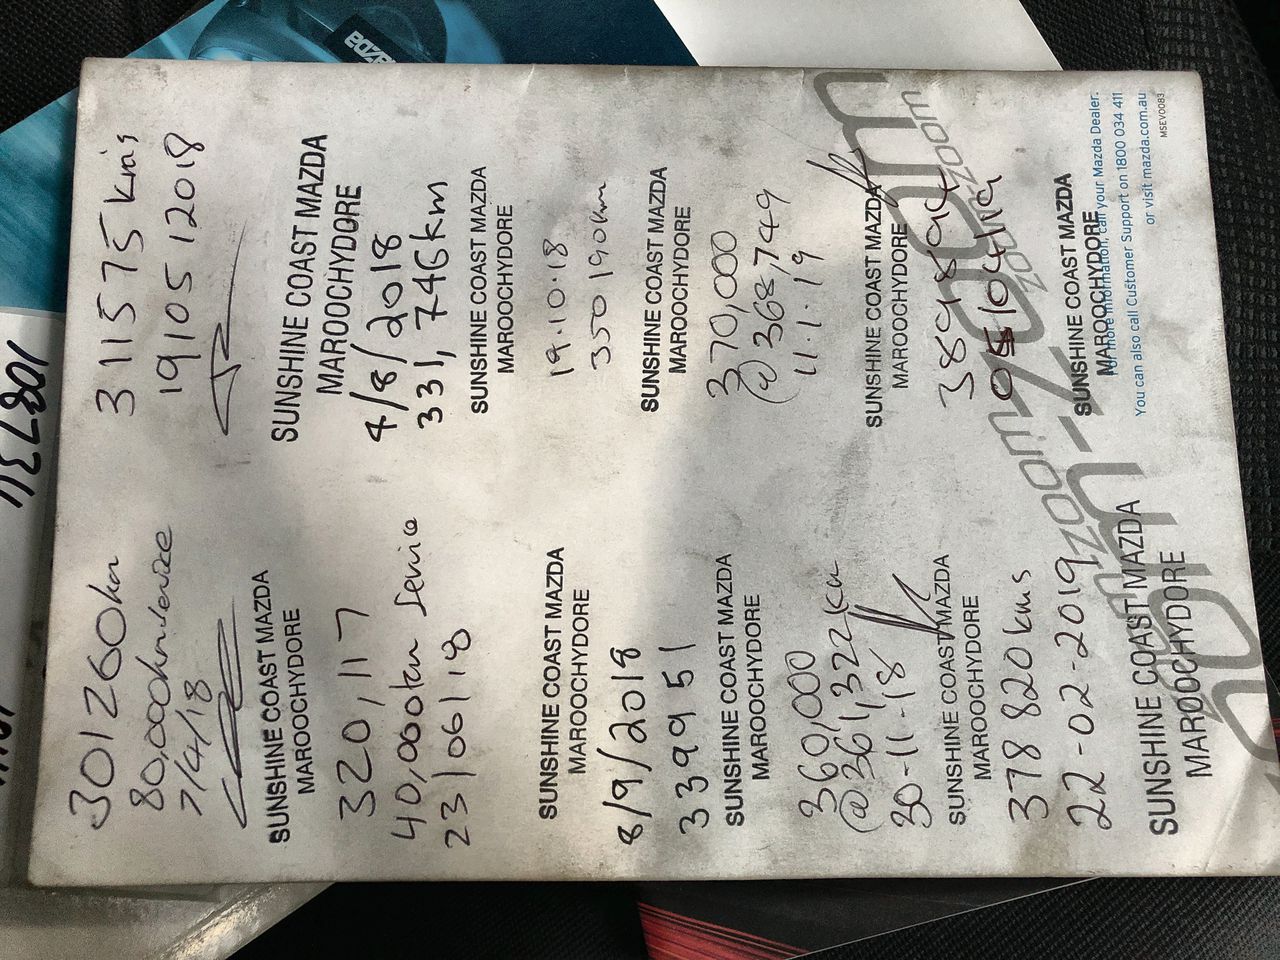 301260km
80,000km service
7/4/18
SUNSHINE COAST MAZDA
MAROOCHYDORE
311575 km's
19/05/2018
SUNSHINE COAST MAZDA
MAROOCHYDORE
320,117
40,000km Service
23/06/18
SUNSHINE COAST MAZDA
MAROOCHYDORE
4/8/2018
331,746km
SUNSHINE COAST MAZDA
MAROOCHYDORE
8/9/2018
339951
SUNSHINE COAST MAZDA
MAROOCHYDORE
19.10.18
350190km
SUNSHINE COAST MAZDA
MAROOCHYDORE
360,000
@361,322km
30-11-18
SUNSHINE COAST MAZDA
MAROOCHYDORE
370,000
@368,749
11.1.19
SUNSHINE COAST MAZDA
MAROOCHYDORE
378820kms
22-02-2019
SUNSHINE COAST MAZDA
MAROOCHYDORE
05/04/19
SUNSHINE COAST MAZDA
MAROOCHYDORE
zoom-zoom
zoom-zoom
For more information, call your Mazda Dealer.
You can also call Customer Support on 1800 034 411
or visit mazda.com.au
MSEV0083